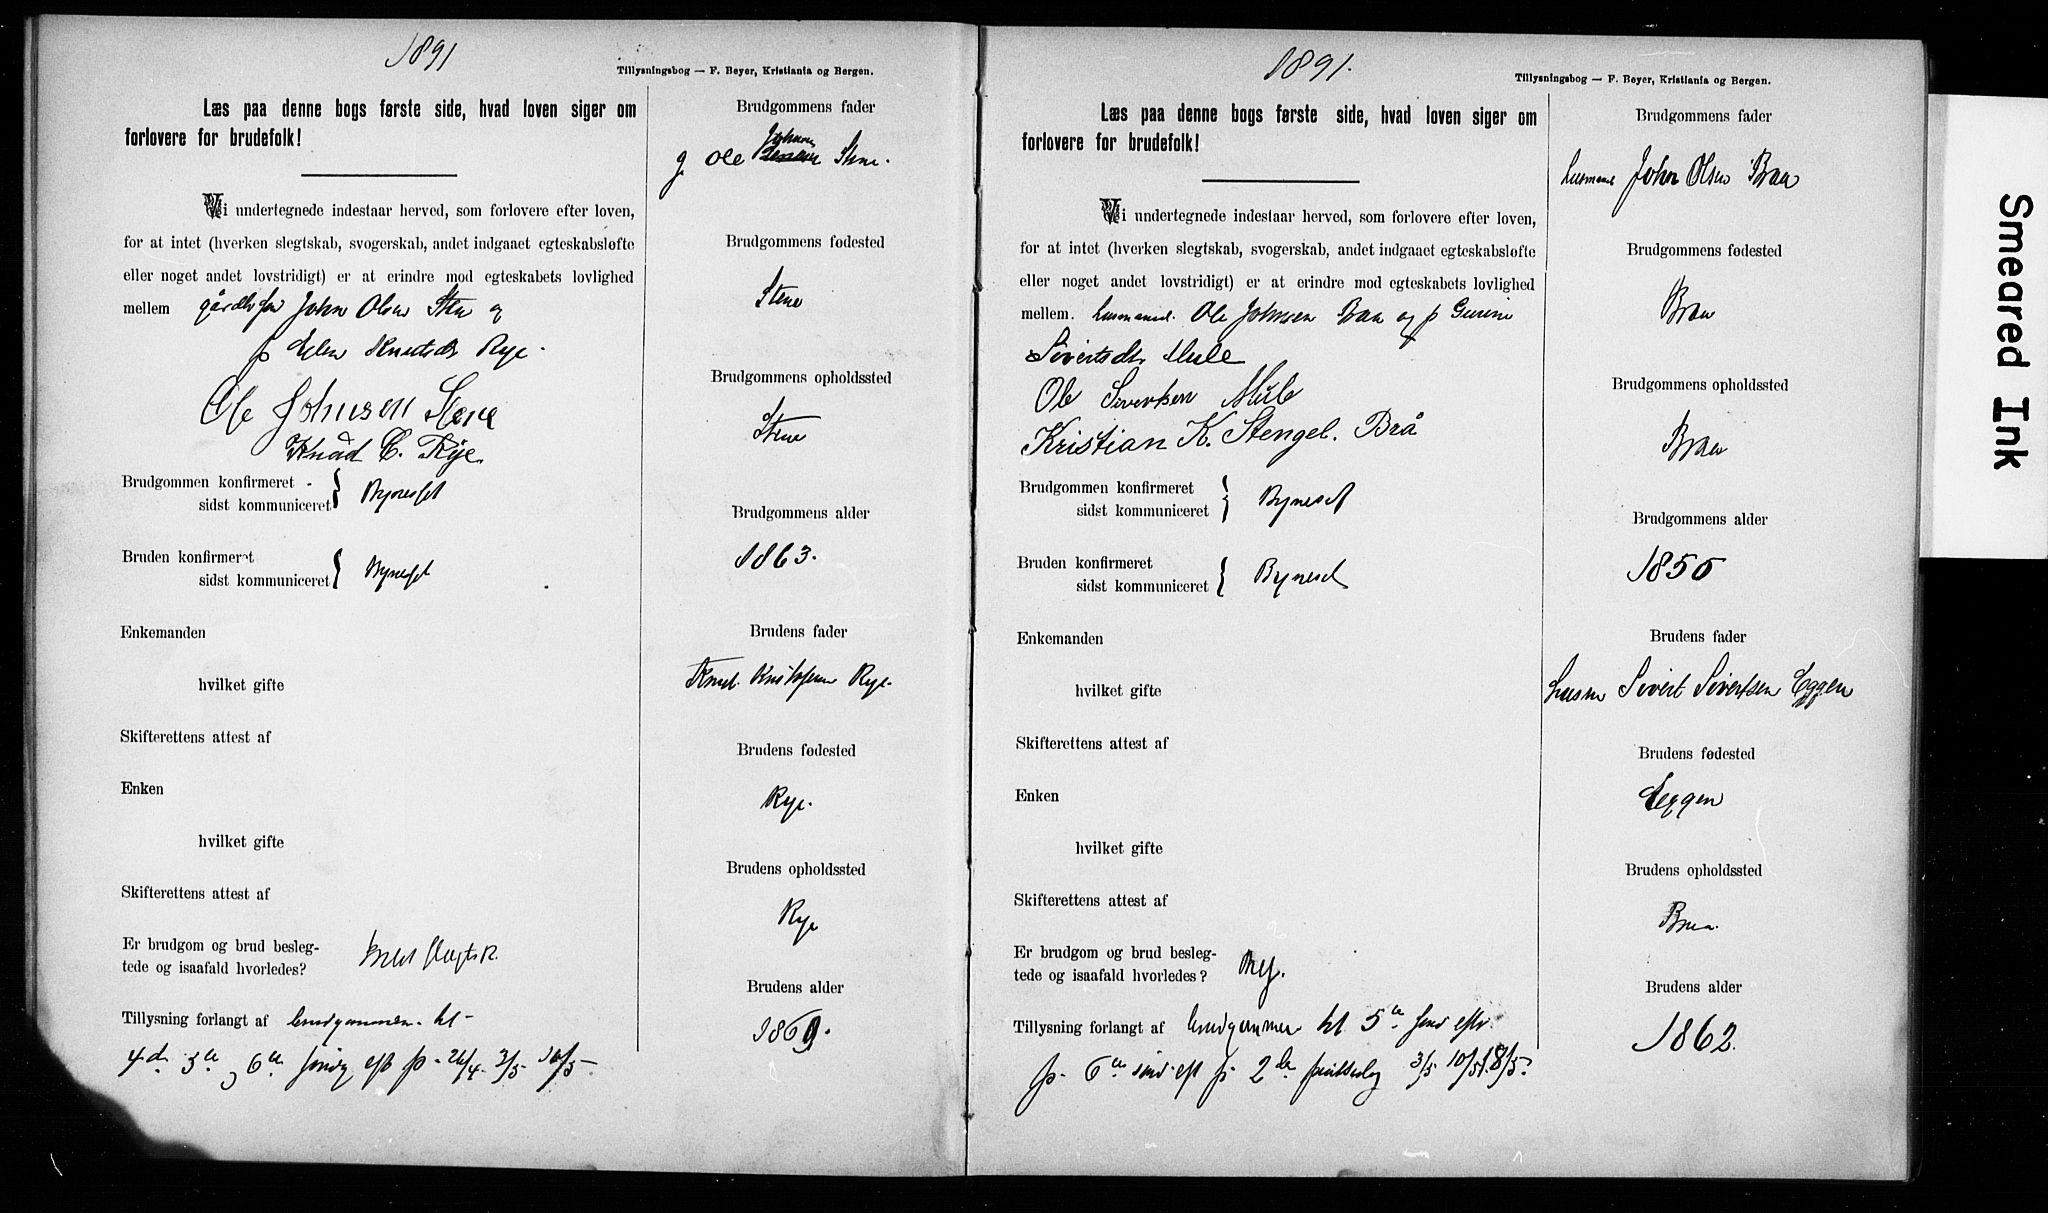 1891
Tillysningsbog — F. Beyer, Kristiania og Bergen.
Læs paa denne bogs første side, hvad loven siger om
forlovere for brudefolk!
Vi undertegnede indestaar herved, som forlovere efter loven,
for at intet (hverken slegtskab, svogerskab, andet indgaaet egteskabsløfte
eller noget andet lovstridigt) er at erindre mod egteskabets lovlighed
mellem gårdbr John Olsen Sten og
p Knutsdr Rye.
Ole Johnsen Stene
Knud C. Rye
Brudgommen konfirmeret
sidst kommuniceret } Bynesset
Bruden konfirmeret
sidst kommuniceret } Bynesset
Enkemanden
hvilket gifte
Skifterettens attest af
Enken
hvilket gifte
Skifterettens attest af
Er brudgom og brud besleg-
tede og isaafald hvorledes?
Tillysning forlangt af brudgommen til
4de 5te og 6te sindg eft p. 26/4 3/5 10/5
Brudgommens fader
g Ole Johnsen Stene.
Brudgommens fødested
Stene
Brudgommens opholdssted
Stene
Brudgommens alder
1863.
Brudens fader
Knud Kristofersen Rye.
Brudens fødested
Rye.
Brudens opholdssted
Rye
Brudens alder
1869.
1891.
Tillysningsbog — F. Beyer, Kristiania og Bergen.
Læs paa denne bogs første side, hvad loven siger om
forlovere for brudefolk!
Vi undertegnede indestaar herved, som forlovere efter loven,
for at intet (hverken slegtskab, svogerskab, andet indgaaet egteskabsløfte
eller noget andet lovstridigt) er at erindre mod egteskabets lovlighed
mellem. husmand. Ole Johnsen Braa og p Gurine
Sivertsdtr Mule
Ole Sivertsen Mule
Kristian K. Stengel. Brå
Brudgommen konfirmeret
sidst kommuniceret } Byneset
Bruden konfirmeret
sidst kommuniceret } Byneset
Enkemanden
hvilket gifte
Skifterettens attest af
Enken
hvilket gifte
Skifterettens attest af
Er brudgom og brud besleg-
tede og isaafald hvorledes? Nej.
Tillysning forlangt af brudgommen til 5te sind eftr.
p. 6te sind eft p. 2den pintsedag 3/5 10/5 18/5
Brudgommens fader
husmand John Olsen Braa
Brudgommens fødested
Braa
Brudgommens opholdssted
Braa
Brudgommens alder
1855
Brudens fader
husm Sivert Sivertsen Eggen
Brudens fødested
Eggen
Brudens opholdssted
Braa.
Brudens alder
1862.
Smeared Ink